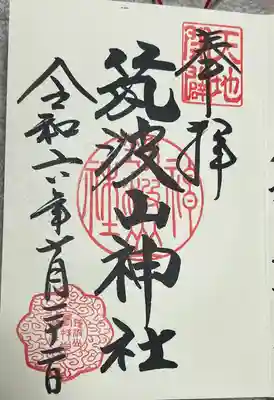 奉拝
天地開闢
筑波山神社
令和六年十月二十一日